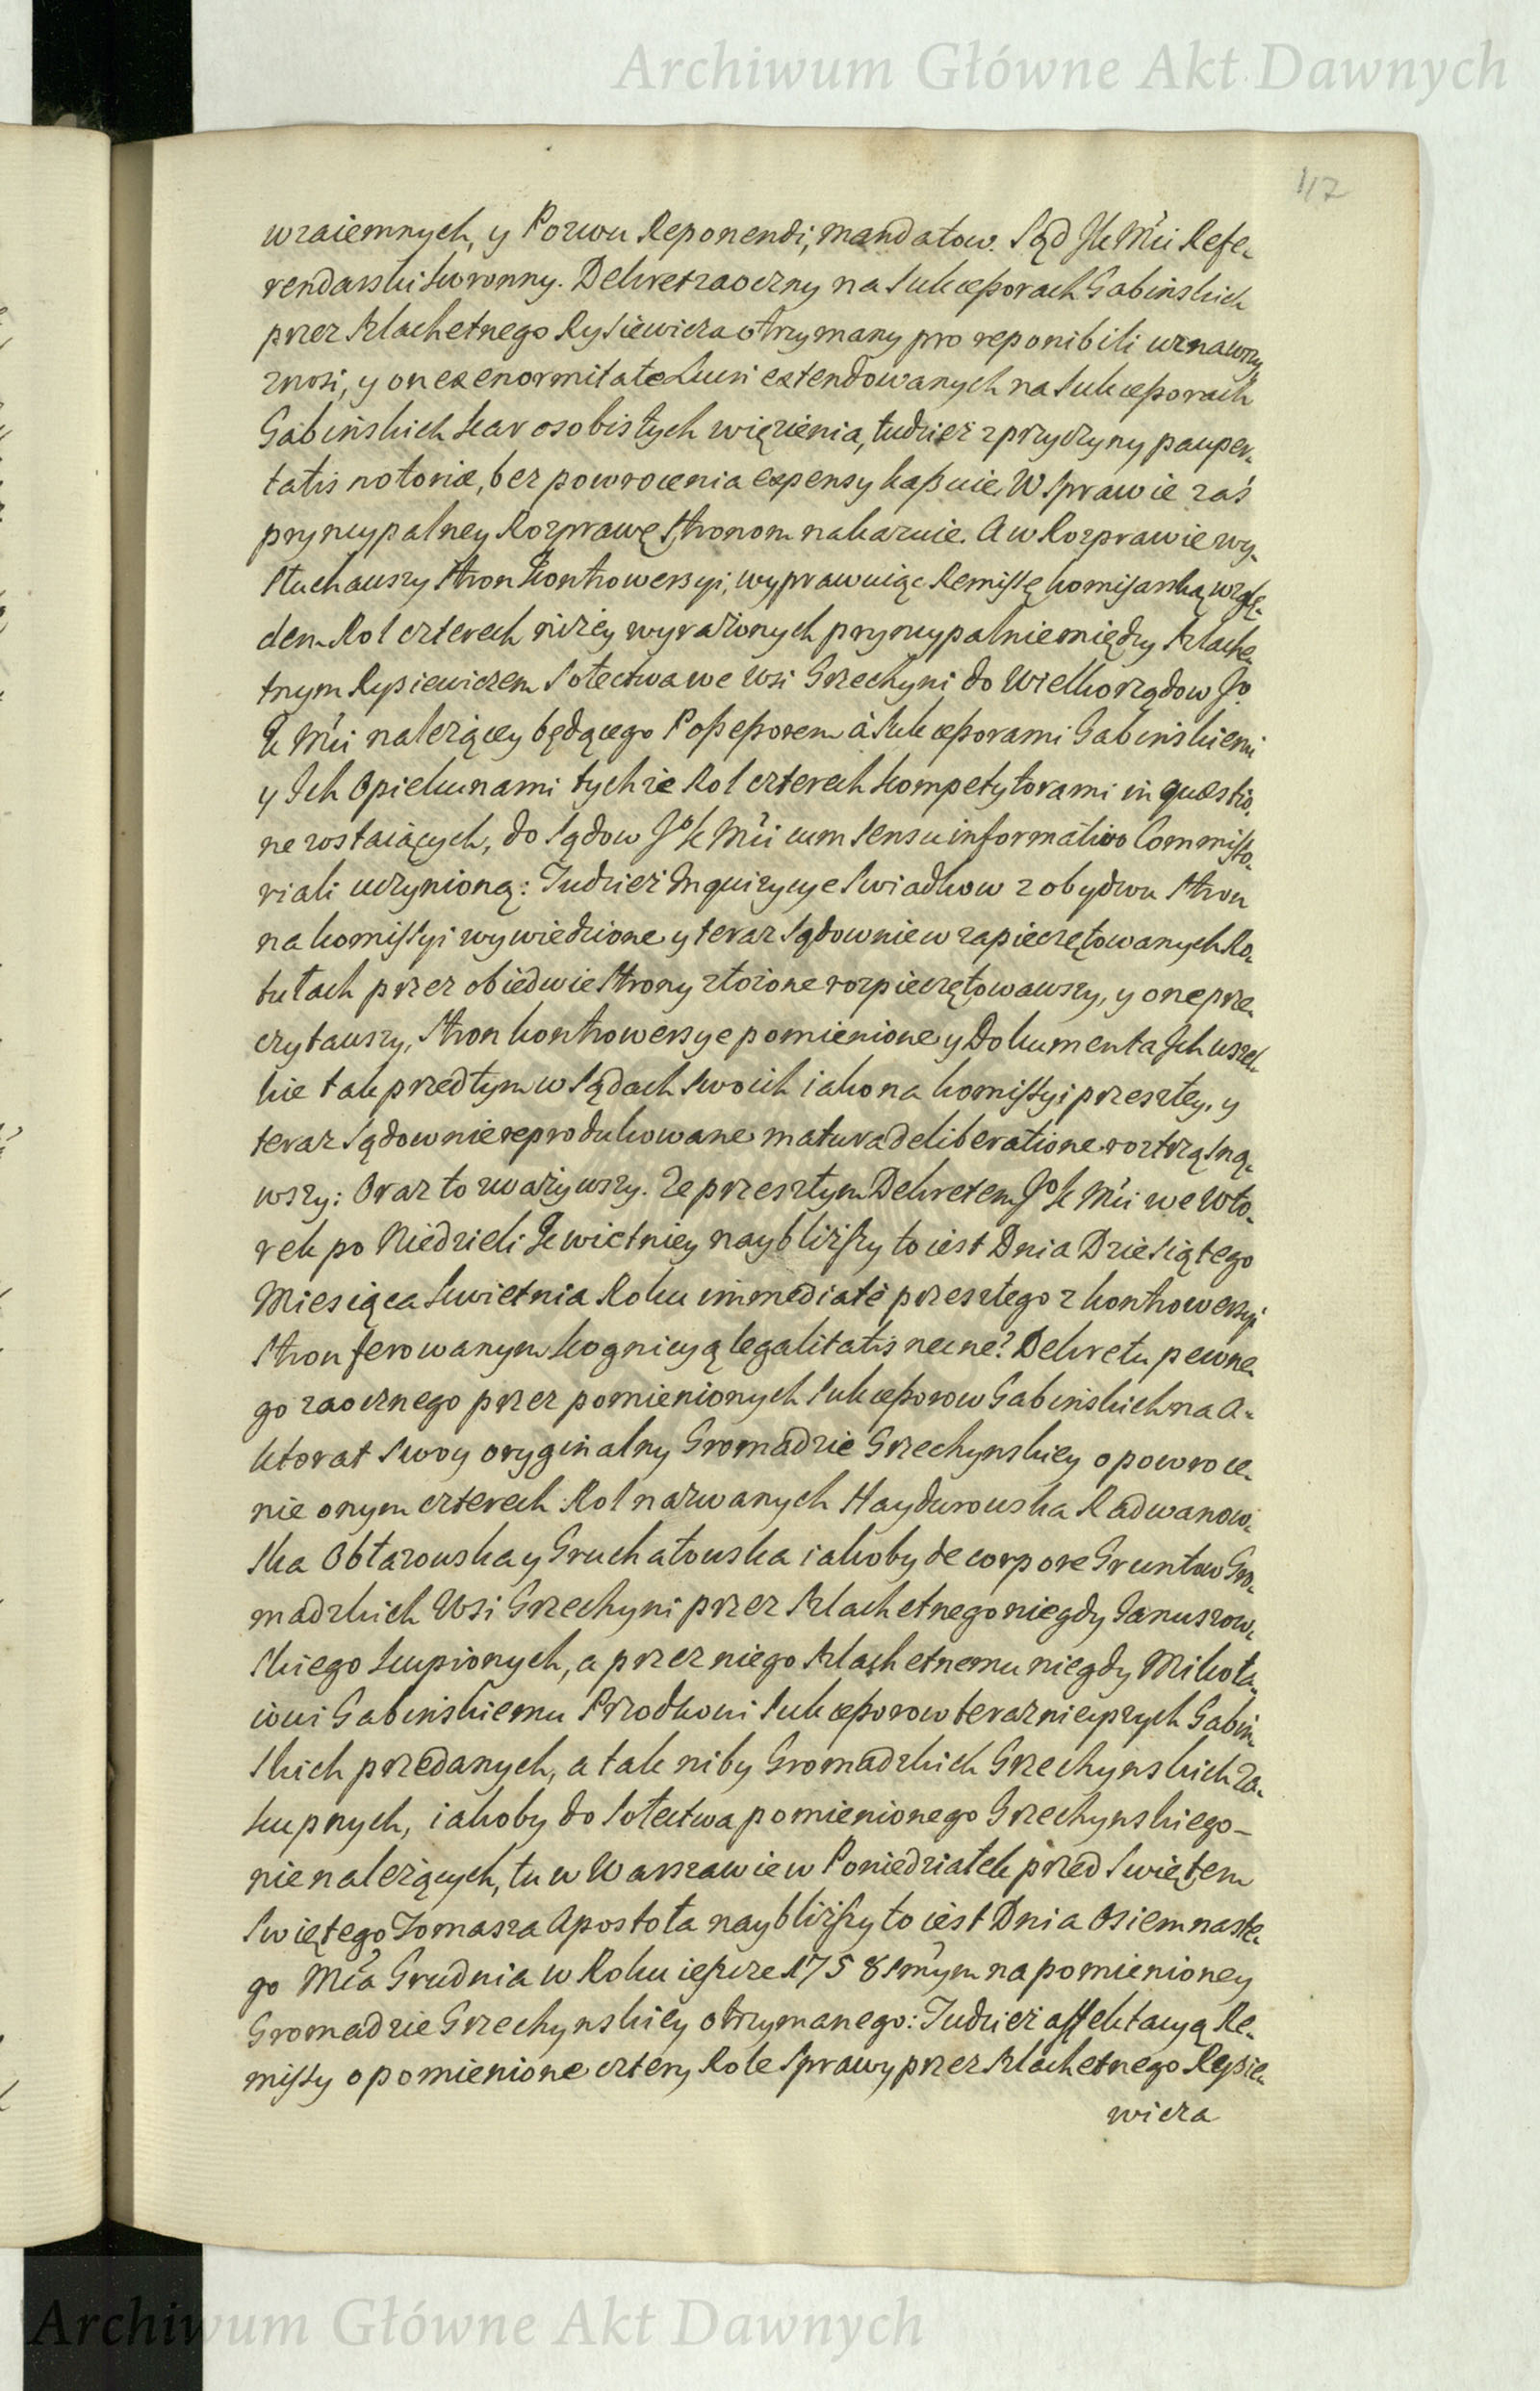 Archiwum Główne Akt Dawnych
117
wzaiemnych, y Pozwu Reponendi, mandatow. Sąd JK Mci Refe-
rendarski Koronny. Dekret zaoczny na Sukceßorach Gabinskich
przez Szlachetnego Rysiewicza otrzymany pro reponibili uznawszy
znosi, y one ex enormitate Luсri extendowanych na Sukceßorach
Gabinskich kar osobistych więzienia, tudzież z przyczyny pauper-
tatis notoriæ, bez powrocenia expensy kaßuie. W Sprawie zaś
pryncypalney Rozprawę Stronom nakazuie. A w Rozprawie wy-
słuchawszy Stron Kontrowersyi, wyprawuiąc Remissę komisarską wzglę-
dem Rol czterech niżey wyrażonych pryncypalnie między Szlache-
tnym Rysiewiczem Sołectwa we Wsi Grzechyni do Wielkorządow Jo
K Mci należącey będącego Poßeßorem à Sukceßorami Gabinskiemi
y Ich Opiekunami tychże Rol czterech kompetytorami in quæstio-
ne zostaiących, do Sądow Jo K Mci cum sensu informativo Commisso-
riali uczynioną: Tudzież Inquizycye Swiadkow z obydwu Stron
na komissyi wywiedzione y teraz Sądownie w zapieczętowanych Ro-
tułach przez obiedwie Strony złożone rozpieczętowawszy, y one prze-
czytawszy, Stron kontrowersye pomienione y Dokumenta Ich wszel-
kie tak przedtym w Sądach Swoich iako na komissyi przeszłey, y
teraz Sądownie reprodukowane matura deliberatione roztrząsną-
wszy: Oraz to uważywszy. Ze przeszłym Dekretem Jo K Mci we Wto-
rek po Niedzieli Kwietniey naybliższy to iest Dnia Dziesiątego
Miesiąca Kwietnia Roku immediatè przeszłego z kontrowersyi
Stron ferowanym kognicyą legalitatis necne? Dekretu pewne-
go zaocznego przez pomienionych Sukceßorow Gabinskich na A-
ktorat Swoy oryginalny Gromadzie Grzechynskiey o powroce-
nie onym czterech Rol nazwanych Haydurowska Radwanow-
ska Obtazowska y Gruchatowska iakoby de corpore Gruntow Gro-
madzkich Wsi Grzechyni przez Szlachetnego niegdy Januszow-
skiego kupionych, a przez niego Szlachetnemu niegdy Mikoła-
iowi Gabinskiemu Przodkowi Sukceßorow teraznieyszych Gabin-
skich przedanych, a tak niby Gromadzkich Grzechynskich za-
kupnych, iakoby do Sołectwa pomienionego Grzechynskiego –
nie należących, tu w Warszawie w Poniedziałek przed Swiętem
Swiętego Tomasza Apostoła naybliższy to iest Dnia Osiemnaste-
go Mca Grudnia w Roku ieszcze 1758smym na pomienioney
Gromadzie Grzechynskiey otrzymanego: Tudzież affektacyą Re-
missy o pomienione cztery Role Sprawy przez Szlachetnego Rysie-
wicza
Archiwum Główne Akt Dawnych